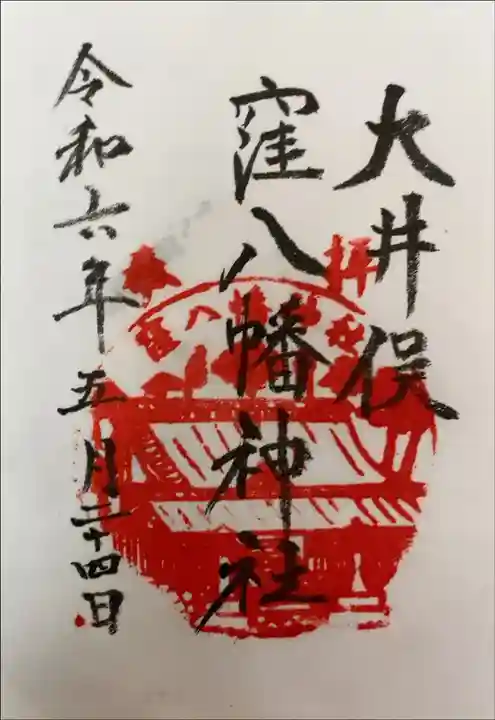 大井俣
窪八幡神社
奉拝
窪八幡神社
令和六年五月二十四日